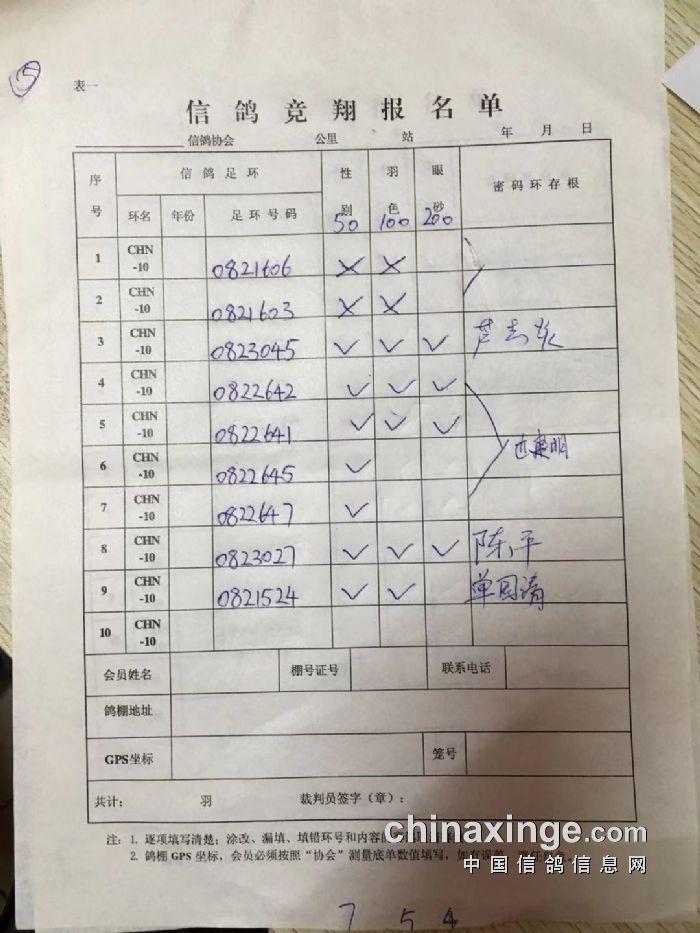 ⑤
表一
信鸽竞翔报名单
信鸽协会 公里 站 年 月 日
序号 信鸽足环 性别 羽色 眼砂 密码环存根
环名 年份 足环号码 50 100 200
1 CHN-10 0821606 × ×
2 CHN-10 0821603 × ×
3 CHN-10 0823045 ✓ ✓ ✓
4 CHN-10 0822642 ✓ ✓ ✓
5 CHN-10 0822641 ✓ ✓ ✓
6 CHN-10 0822645 ✓
7 CHN-10 0822647 ✓
8 CHN-10 0823027 ✓ ✓ ✓ 陈平
9 CHN-10 0821524 ✓ ✓ 单国清
10 CHN-10
会员姓名 棚号证号 联系电话
鸽棚地址
GPS坐标 笼号
共计： 羽 裁判员签字（章）：
注：1. 逐项填写清楚；涂改、漏填、填错环号和内容的
2. 鸽棚 GPS 坐标，会员必须按照“协会”测量底单数值填写，如有误差，责任自负。
chinaxinge.com
中国信鸽信息网
7 5 4